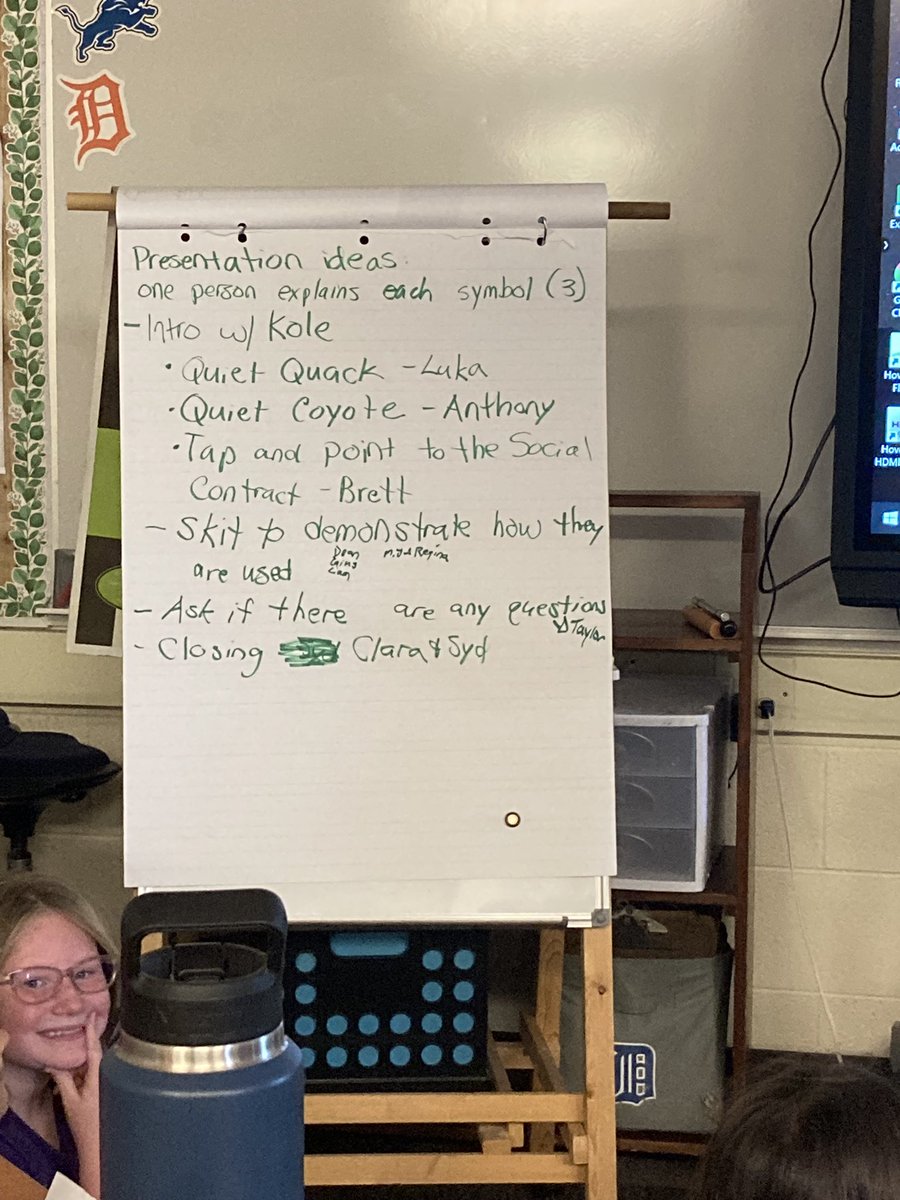 Presentation ideas.
one person explains each symbol (3)
- Intro w/ Kole
• Quiet Quack - Luka
• Quiet Coyote - Anthony
• Tap and point to the Social
Contract - Brett
- Skit to demonstrate how they
are used
Regina
- Ask if there are any questions
Taylor
- Closing Clara & Syd
D
D
HDMI